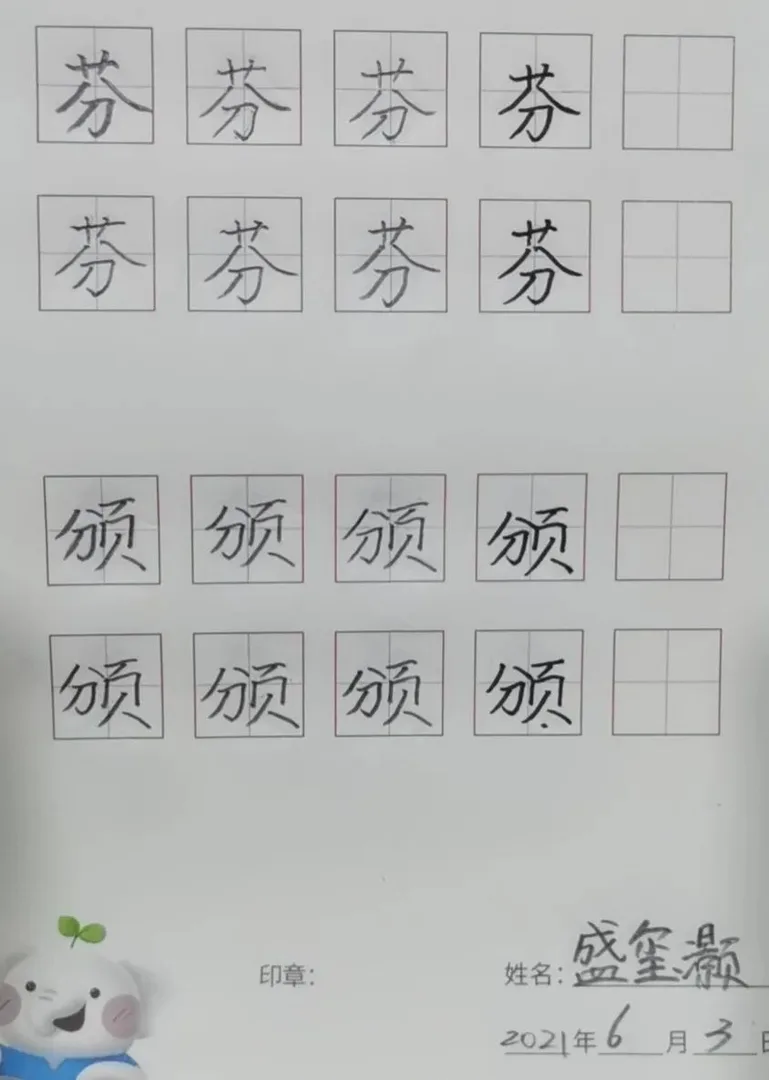 芬 芬 芬 芬
芬 芬 芬 芬
颁 颁 颁 颁
颁 颁 颁 颁
印章: 姓名: 盛玺灏
2021年6月3日